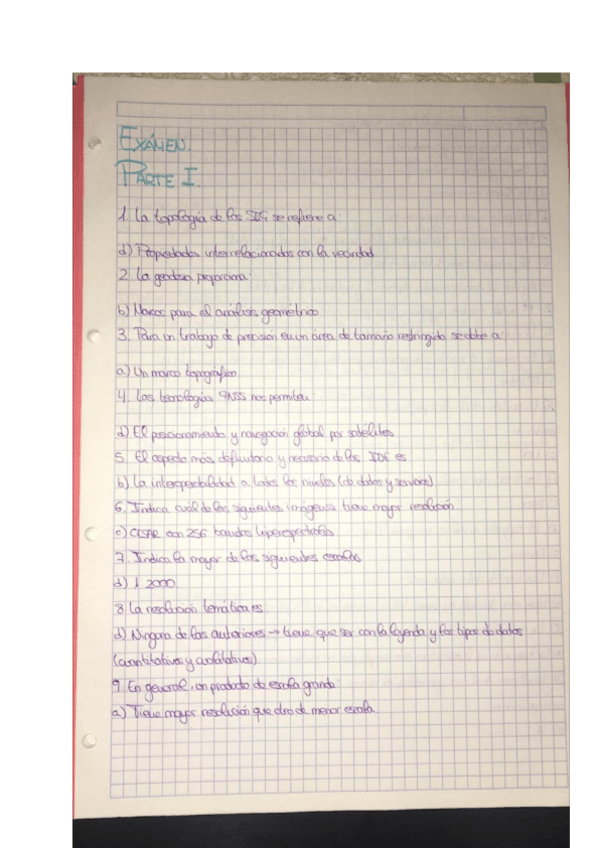 EXÁMEN.
PARTE I.
1. La topología de los SIG se refiere a:
d) Propiedades interrelacionadas con la vecindad
2. La geodesia proporciona:
b) Marcos para el análisis geométrico
3. Para un trabajo de precisión en un área de tamaño restringido se debe a:
a) Un marco topográfico
4. Las tecnologías GNSS nos permiten:
d) El posicionamiento y navegación global por satélites
5. El aspecto más definitorio y necesario de las IDE es
b) La interoperabilidad a todos los niveles (de datos y servicios)
6. Indica cual de las siguientes imágenes tiene mayor resolución
c) con 256 bandas hiperespectrales
7. Indica la mayor de las siguientes escalas
d) 1:2000
8. La resolución temática es:
d) Ninguna de las anteriores → tiene que ser con la leyenda y los tipos de datos
(cuantitativos y cualitativos)
9. En general, un producto de escala grande:
a) Tiene mayor resolución que otro de menor escala